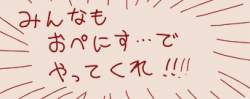 みんなも
おぺにす…で
やってくれ!!!!